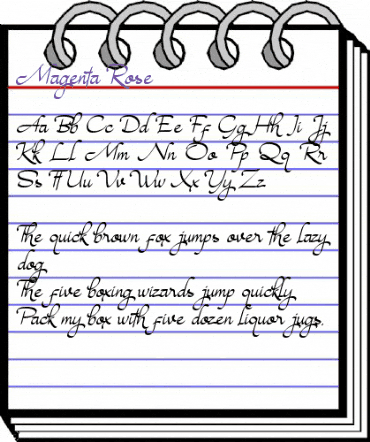 Magenta Rose
Aa Bb Cc Dd Ee Ff Gg Hh Ii Jj
Kk Ll Mm Nn Oo Pp Qq Rr
Ss Tt Uu Vv Ww Xx Yy Zz
The quick brown fox jumps over the lazy
dog
The five boxing wizards jump quickly
Pack my box with five dozen liquor jugs.